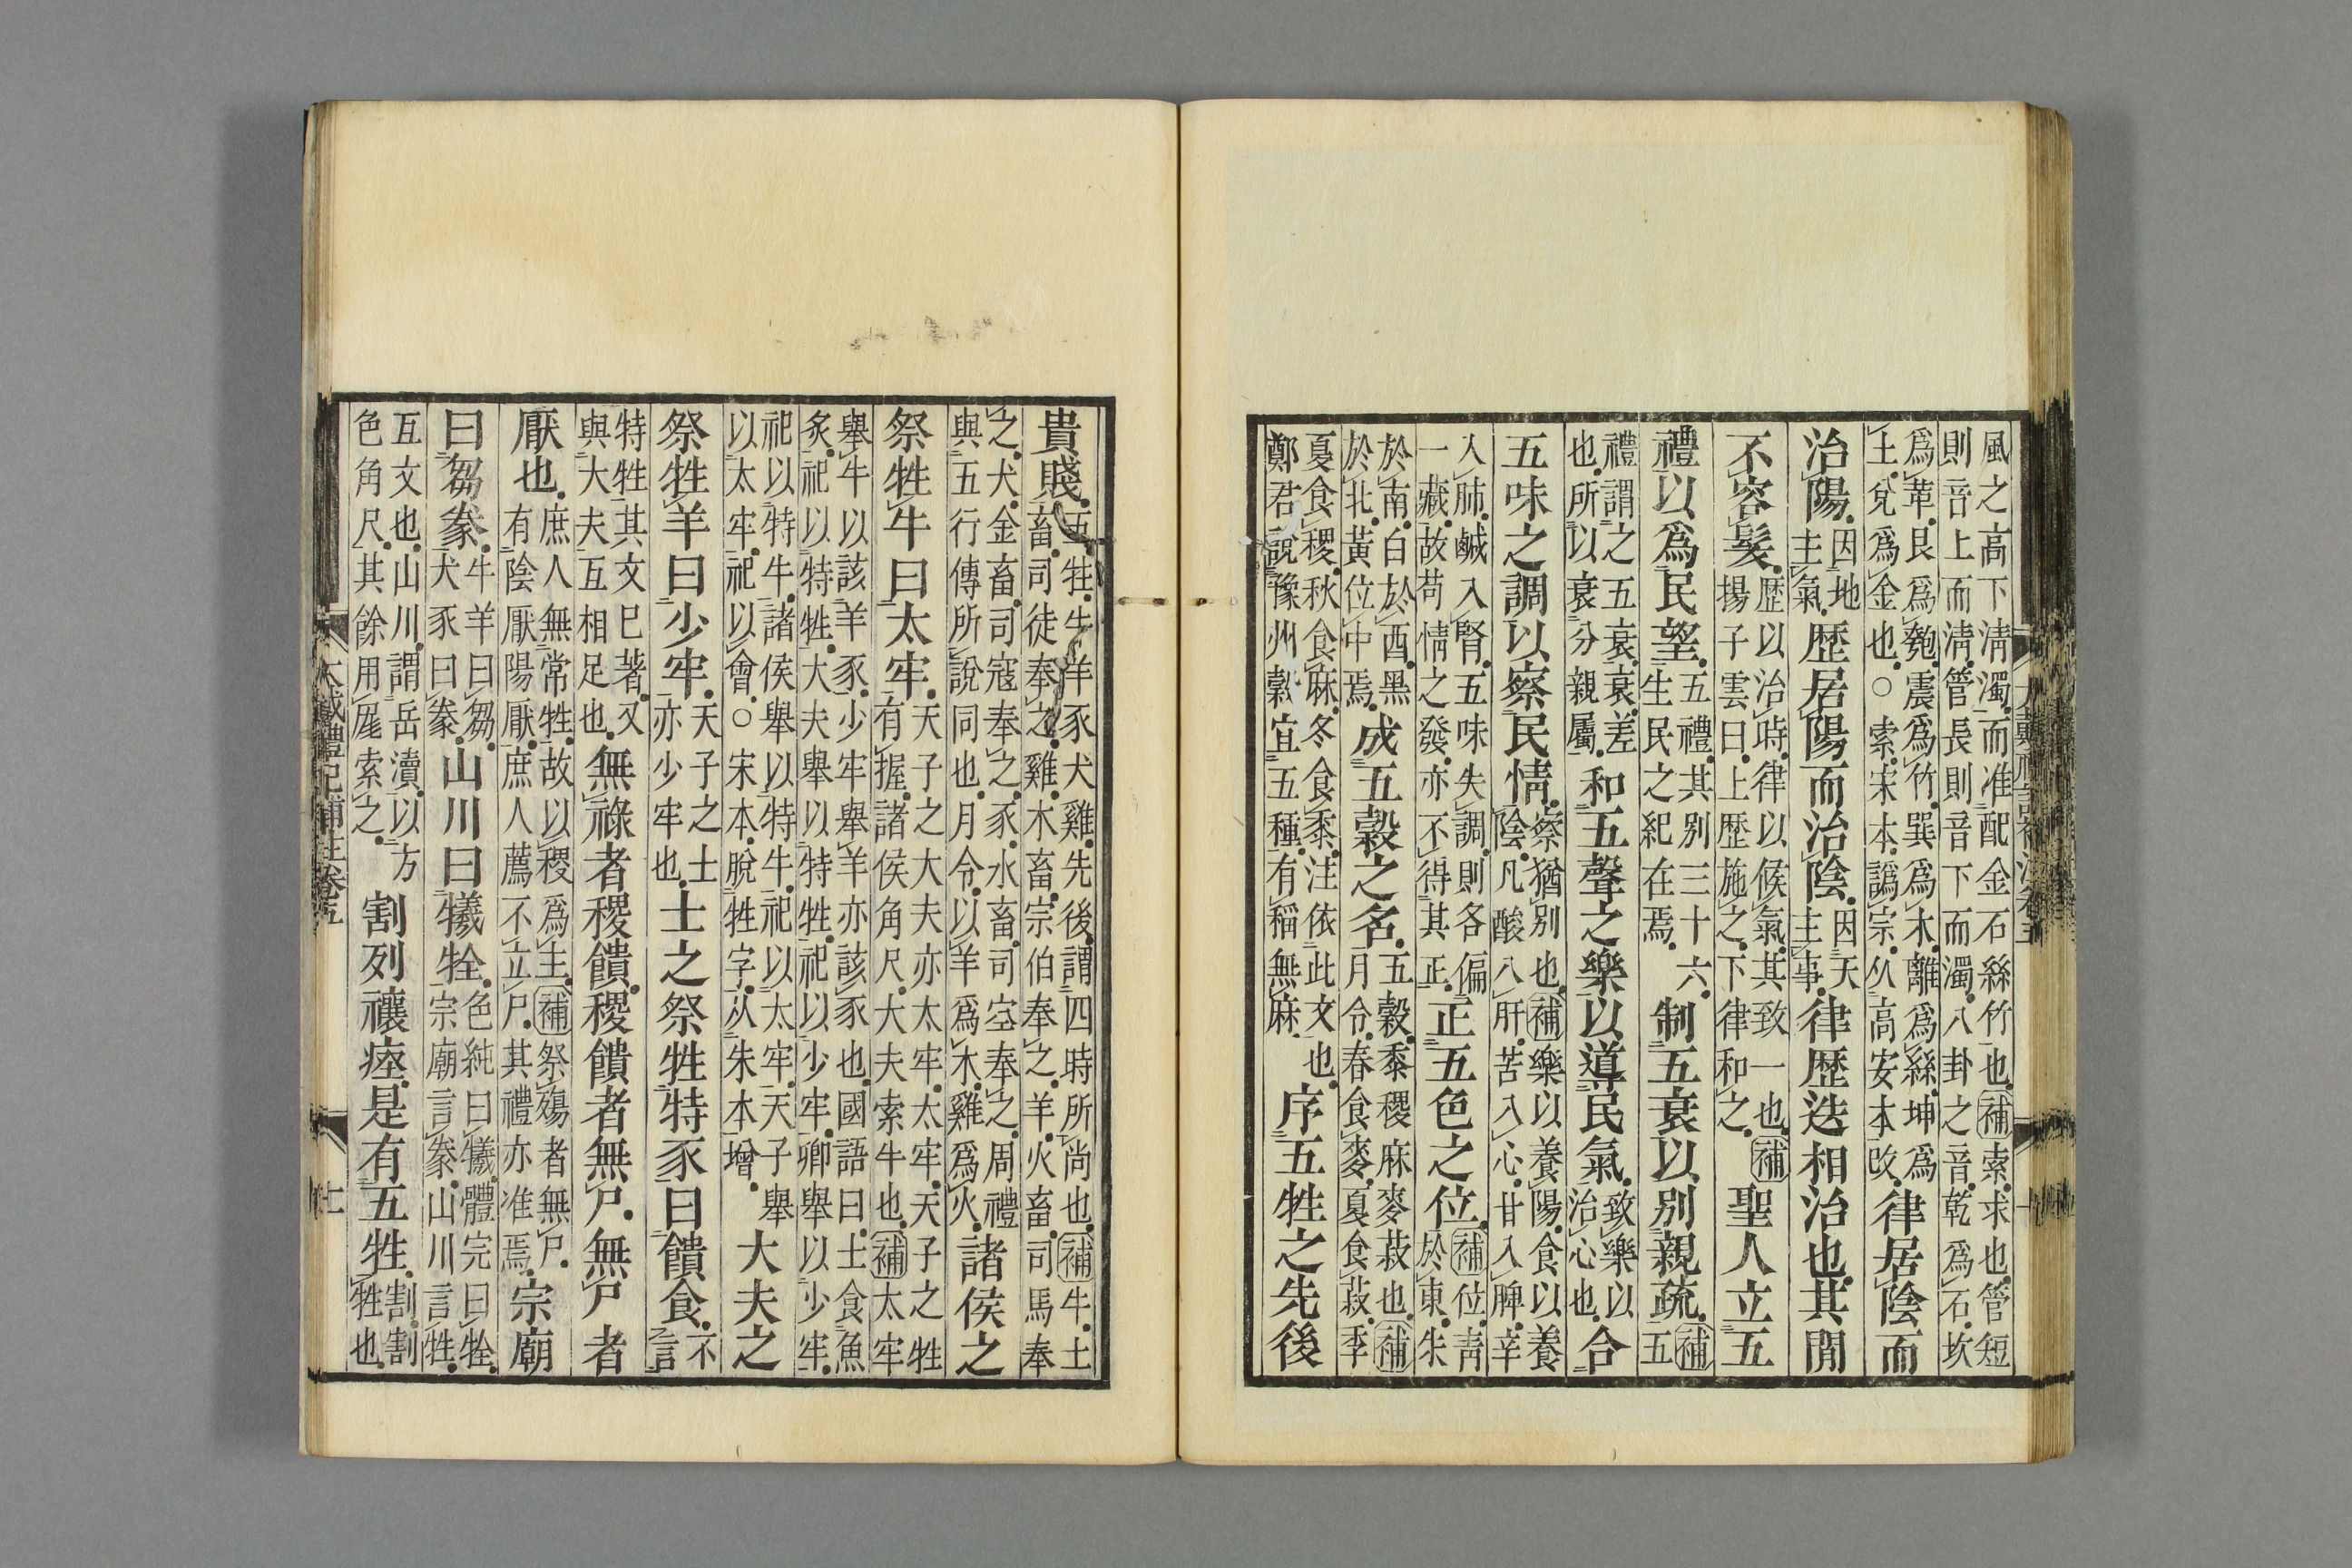 風之高下淸濁而准配金石絲竹也補索求也管短
則音上而淸管長則音下而濁八卦之音乾爲石坎
爲革艮爲匏震爲竹巽爲木離爲絲坤爲
土兌爲金也○索宋本譌宗从高安本改律居陰而
治陽因地
主氣歷居陽而治陰因天
主事律歷迭相治也其閒
不容髮歷以治時律以候氣其致一也補
揚子雲曰上歷施之下律和之聖人立五
禮以爲民望五禮其别三十六
生民之紀在焉制五衰以别親疏補五
禮謂之五衰衰差
也所以衰分親屬和五聲之樂以導民氣致樂以
治心也合
五味之調以察民情察猶别也補樂以養陽食以養
陰凡酸入肝苦入心甘入脾辛
入肺鹹入腎五味失調則各偏
一藏故苟情之發亦不得其正正五色之位補位靑
於東朱
於南白於酉黑
於北黃位中焉成五穀之名五穀黍稷麻麥菽也補
月令春食麥夏食菽季
夏食稷秋食麻冬食黍注依此文也
鄭君說豫州穀宜五種有稻無麻序五牲之先後
貴賤五牲牛羊豕犬雞先後謂四時所尚也補牛土
畜司徒奉之雞木畜宗伯奉之羊火畜司馬奉
之犬金畜司寇奉之豕水畜司空奉之周禮
與五行傳所說同也月令以羊爲木雞爲火諸侯之
祭牲牛曰太牢天子之大夫亦太牢太牢天子之牲
有握諸侯角尺大夫索牛也補太牢
舉牛以該羊豕少牢舉羊亦該豕也國語曰士食魚
炙祀以特牲大夫舉以特牲祀以少牢卿舉以少牢
祀以特牛諸侯舉以特牛祀以太牢天子舉
以太牢祀以會○宋本脫牲字从朱本增大夫之
祭牲羊曰少牢天子之士
亦少牢也士之祭牲特豕曰饋食不
言
特牲其文巳著又
與大夫互相足也無祿者稷饋稷饋者無尸無尸者
厭也庶人無常牲故以稷爲主補祭殤者無尸
有陰厭陽厭庶人薦不立尸其禮亦准焉宗廟
曰芻豢牛羊曰芻
犬豕曰豢山川曰犧牷色純曰犧體完曰牷
宗廟言豢山川言牲
互文也山川謂岳瀆以方
色角尺其餘用厖索之割列禳瘞是有五牲割割
牲也
大戴禮記補注卷五
七